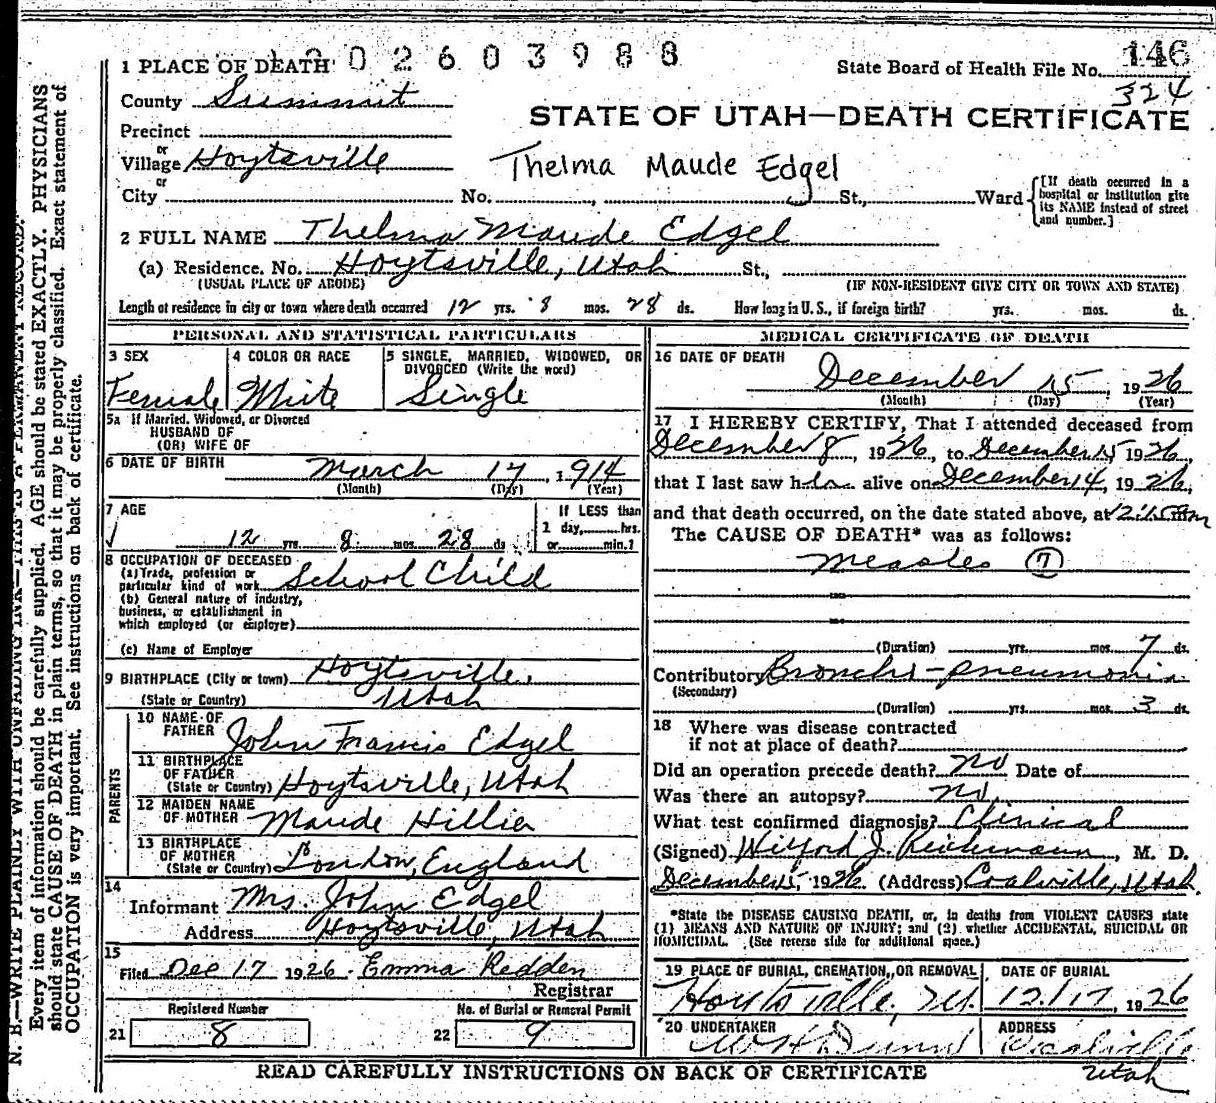 0 2 6 0 3 9 8 8
146
1 PLACE OF DEATH
State Board of Health File No.
324
County Summit
STATE OF UTAH—DEATH CERTIFICATE
Precinct
or
Village Hoytsville
Thelma Maude Edgel
or
City No. , St., Ward
[If death occurred in a hospital or institution give its NAME instead of street and number.]
2 FULL NAME Thelma Maude Edgel
(a) Residence. No. Hoytsville, Utah St.,
(USUAL PLACE OF ABODE) (IF NON-RESIDENT GIVE CITY OR TOWN AND STATE)
Length of residence in city or town where death occurred 12 yrs. 8 mos. 28 ds. How long in U. S., if foreign birth? yrs. mos. ds.
PERSONAL AND STATISTICAL PARTICULARS
3 SEX
Female
4 COLOR OR RACE
White
5 SINGLE, MARRIED, WIDOWED, OR DIVORCED (Write the word)
Single
5a If Married, Widowed, or Divorced
HUSBAND OF
(OR) WIFE OF
6 DATE OF BIRTH March 17, 1914
(Month) (Day) (Year)
7 AGE
12 yrs 8 mos. 28 ds
If LESS than
1 day, hrs.
or min.?
8 OCCUPATION OF DECEASED
(a) Trade, profession or
particular kind of work School Child
(b) General nature of industry,
business, or establishment in
which employed (or employer)
(c) Name of Employer
9 BIRTHPLACE (City or town) Hoytsville,
(State or Country) Utah
PARENTS
10 NAME OF
FATHER John Francis Edgel
11 BIRTHPLACE
OF FATHER
(State or Country) Hoytsville, Utah
12 MAIDEN NAME
OF MOTHER Maude Hillier
13 BIRTHPLACE
OF MOTHER
(State or Country) London, England
14
Informant Mrs. John Edgel
Address Hoytsville, Utah
15
Filed Dec 17 1926 Emma Redden
Registrar
Registered Number
21 8
No. of Burial or Removal Permit
22 9
MEDICAL CERTIFICATE OF DEATH
16 DATE OF DEATH
December 15, 1926
(Month) (Day) (Year)
17 I HEREBY CERTIFY, That I attended deceased from
December 8, 1926, to December 15 1926,
that I last saw her alive on December 14, 1926,
and that death occurred, on the date stated above, at 12:15 m
The CAUSE OF DEATH* was as follows:
Measles (7)
(Duration) yrs. mos. 7 ds.
Contributory Broncho-pneumonia
(Secondary)
(Duration) yrs. mos. 3 ds.
18 Where was disease contracted
if not at place of death?
Did an operation precede death? no Date of
Was there an autopsy? no
What test confirmed diagnosis? Clinical
(Signed) Wilford J. Reichmann, M. D.
December 15, 1926 (Address) Coalville, Utah.
*State the DISEASE CAUSING DEATH, or, in deaths from VIOLENT CAUSES state
(1) MEANS AND NATURE OF INJURY; and (2) whether ACCIDENTAL, SUICIDAL OR
HOMICIDAL. (See reverse side for additional space.)
19 PLACE OF BURIAL, CREMATION, OR REMOVAL
Hoytsville, Ut.
DATE OF BURIAL
12/17, 1926
20 UNDERTAKER
ADDRESS
Coalville
Utah
READ CAREFULLY INSTRUCTIONS ON BACK OF CERTIFICATE
N. B.—WRITE PLAINLY WITH UNFADING INK—THIS IS A PERMANENT RECORD.
Every item of information should be carefully supplied. AGE should be stated EXACTLY. PHYSICIANS
should state CAUSE OF DEATH in plain terms, so that it may be properly classified. Exact statement of
OCCUPATION is very important. See instructions on back of certificate.